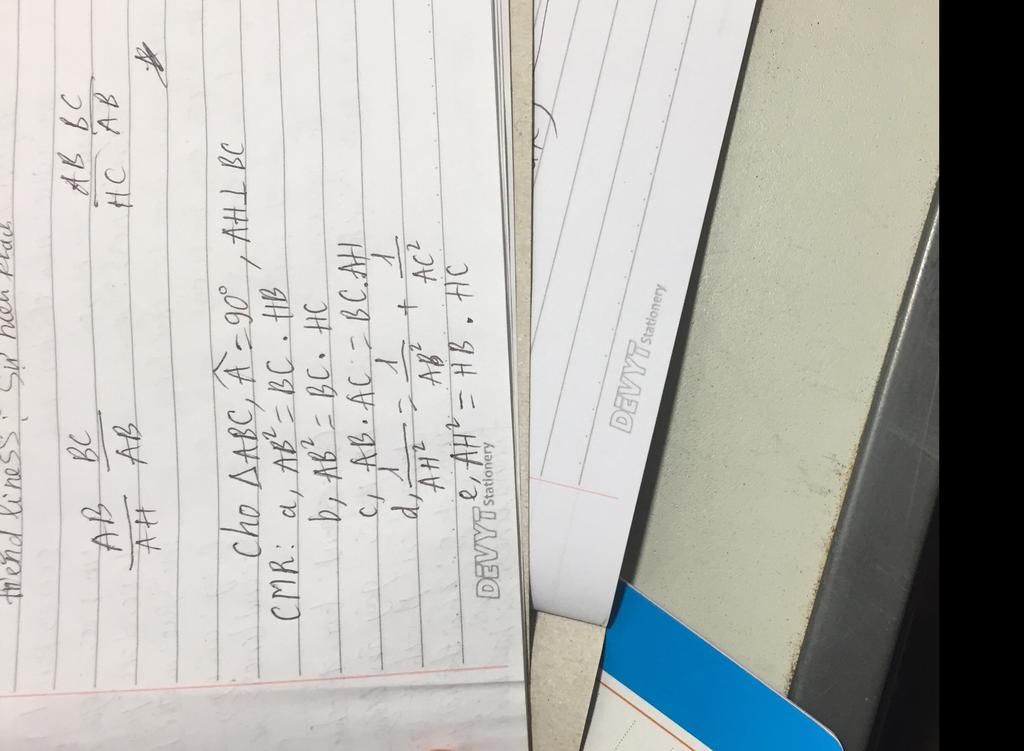 friendliness: Sự
AB BC AB BC
AH AB HC AB
Cho △ABC, Â = 90°, AH⊥BC
CMR: a, AB² = BC . HB
b, AB² = BC . HC
c, AB . AC = BC . AH
d, 1/AH² = 1/AB² + 1/AC²
e, AH² = HB . HC
DEVYT Stationery
DEVYT Stationery